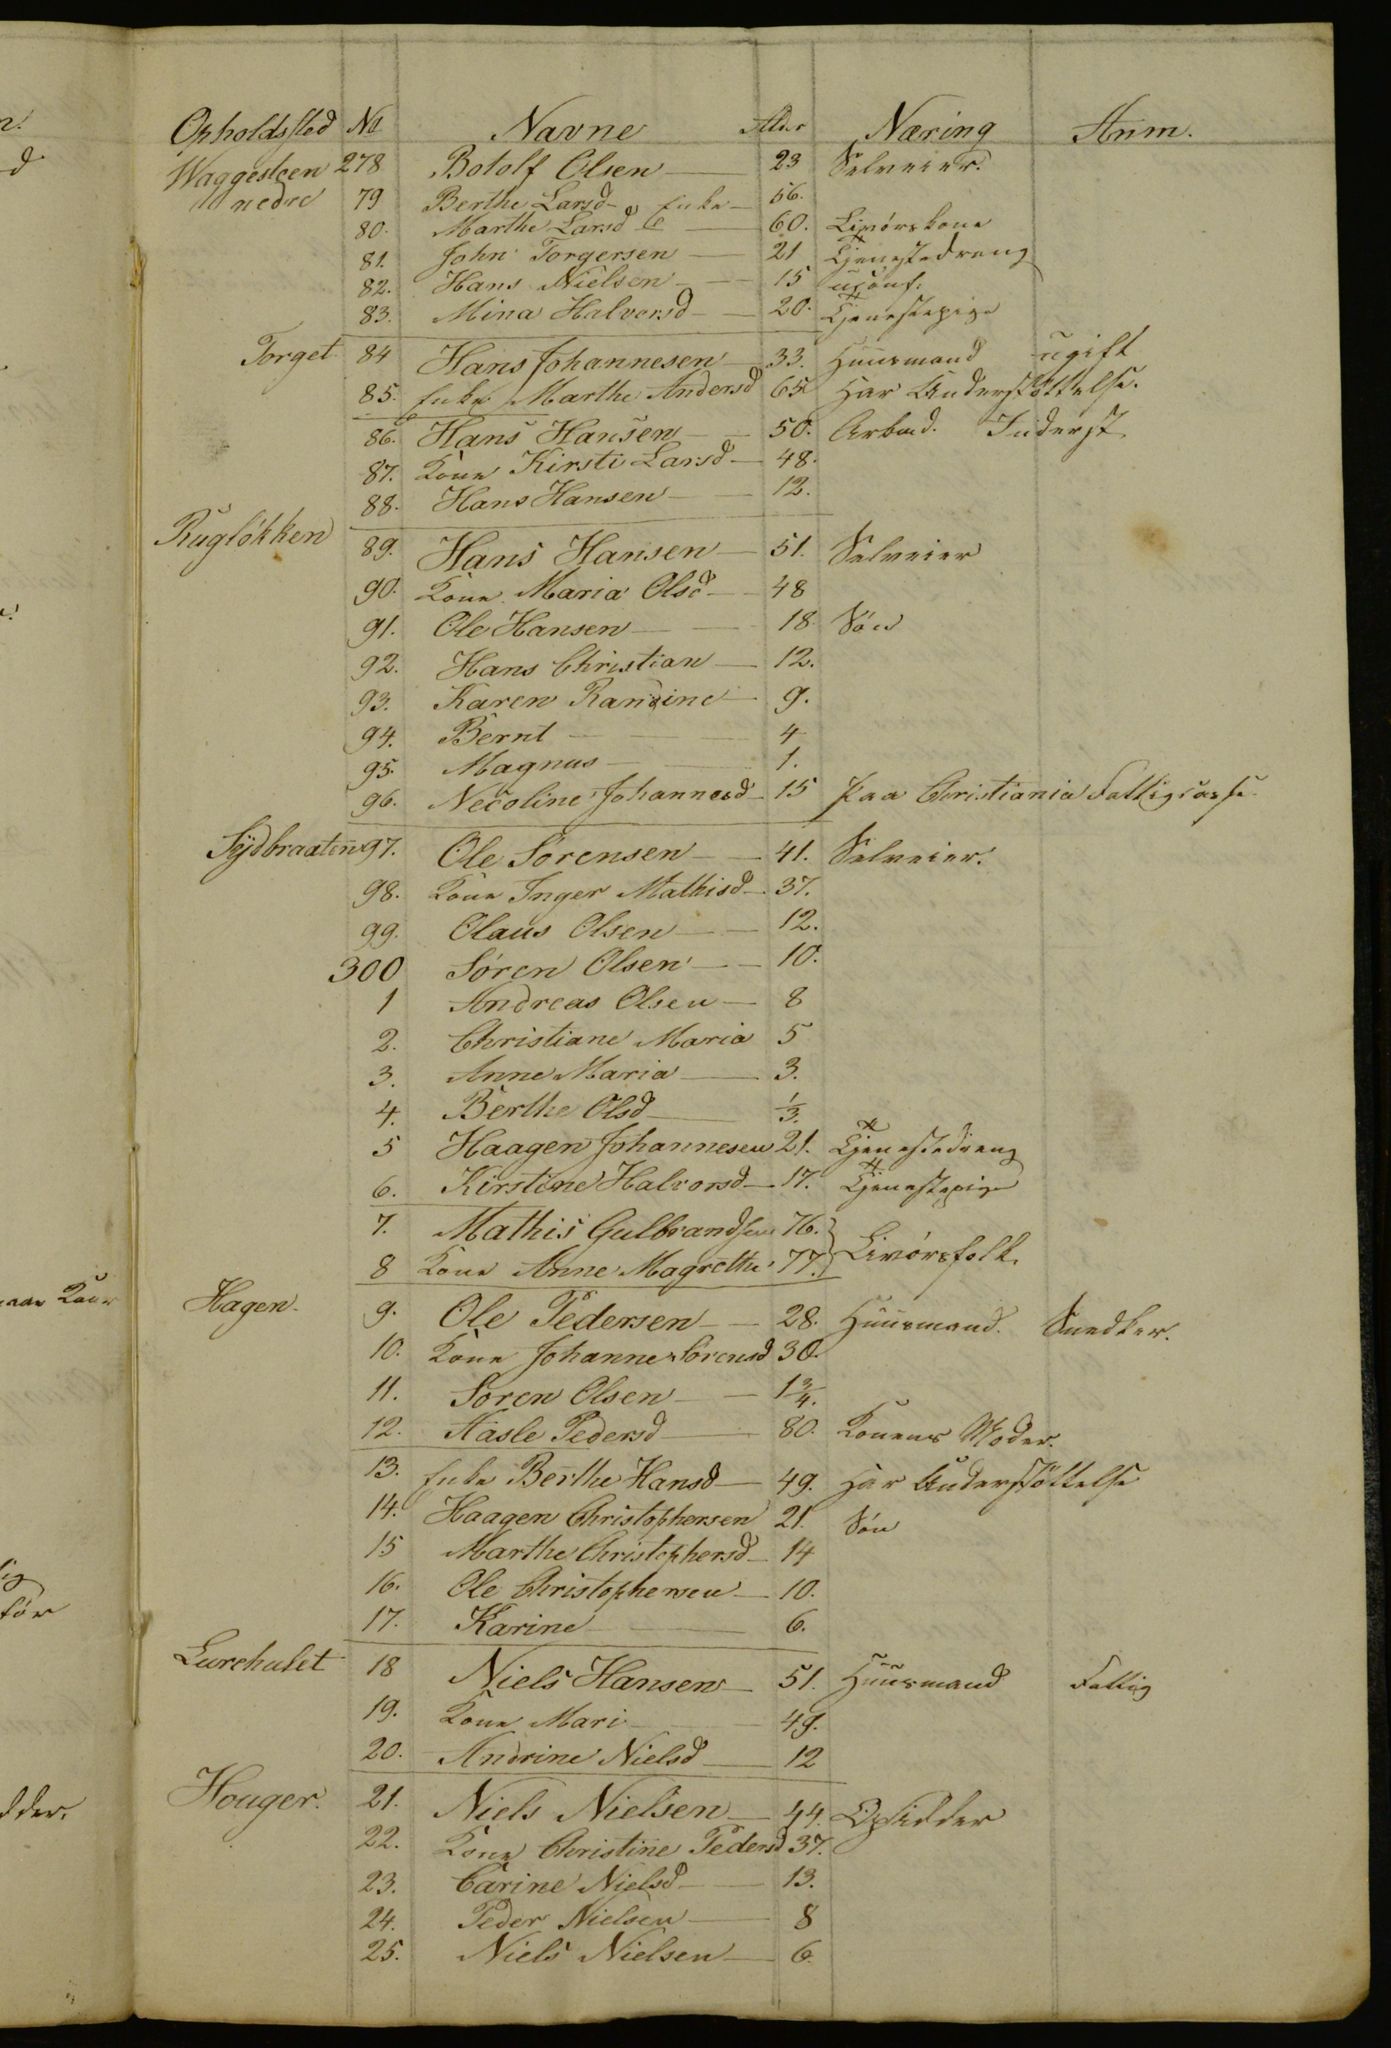 Opholdssted № Navne Alder Næring Anm.
Waggesteen 278 Botolf Olsen 23 Selveier.
nedre 79 Berthe Larsd Enke 56.
80. Marthe Larsd 60. Livörskone
81. John Torgersen 21 Tjenestedreng
82. Hans Nielsen 15
83. Mina Halvorsd 20. Tjenestepige
Torget 84 Hans Johannesen 33. Huusmand ugift
85. Enke Marthe Andersd 65 Har Understøttelse.
86. Hans Hansen 50. Arbeid. Inderst
87. Kone Kirsti Larsd 48.
88. Hans Hansen 12.
Rugløkken 89. Hans Hansen 51. Selveier
90. Kone Maria Olsd 48
91. Ole Hansen 18. Søn
92. Hans Christian 12.
93. Karen Randine 9.
94. Bernt 4
95. Magnus 1.
96. Necoline Johannesd 15 paa Christiania Fattigcasse
Sydbraaten 97. Ole Sørensen 41. Selveier.
98. Kone Inger Mathisd 37.
99. Olaus Olsen 12.
300 Søren Olsen 10.
1 Andreas Olsen 8
2. Christiane Maria 5
3. Anne Maria 3.
4. Berthe Olsd 1/3.
5 Haagen Johannesen 21. Tjenestedreng
6. Kirstine Halvorsd 17. Tjenestepige
7. Mathis Gulbrandsen 76.
8 Kone Anne Magrethe 77. Livörsfolk.
Hagen. 9. Ole Pedersen 28. Huusmand. Snedker.
10. Kone Johanne Sørensd 30.
11. Søren Olsen 1 3/4.
12. Aasle Pedersd 80. Konens Moder.
13. Enke Berthe Hansd 49. Har Understøttelse
14. Haagen Christophersen 21. Søn
15 Marthe Christophersd 14
16. Ole Christophersen 10.
17. Karine 6.
Lurehulet 18 Niels Hansen 51. Huusmand Fattig
19. Kone Mari 49.
20. Andrine Nielsd 12
Houger. 21. Niels Nielsen 44. Opsidder
22. Kone Christine Pedersd 37.
23. Carine Nielsd 13.
24. Peder Nielsen 8
25. Niels Nielsen 6.